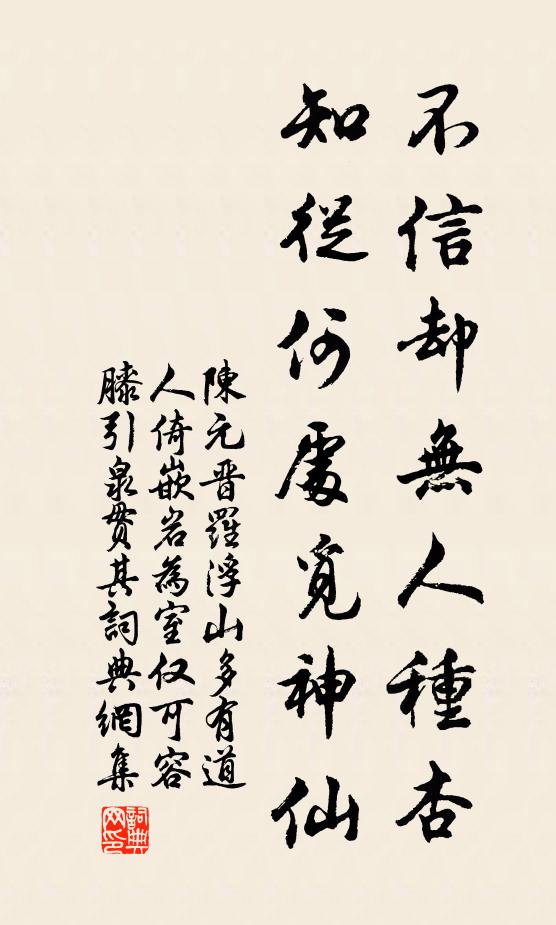 不信却無人種杏
知從何處覓神仙
陳元晋羅浮山多有道
人倚嵌岩為室仅可容
膝引泉貫其詞典網集
詞典网印